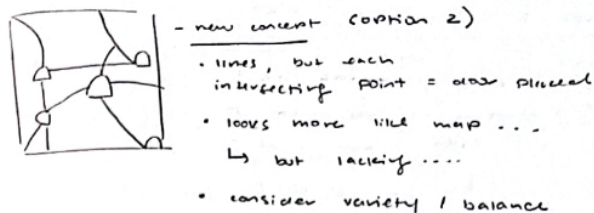 - new concept (option 2)
• lines, but each
intersecting point = door placed
• looks more like map ...
↳ but lacking ....
• consider variety / balance